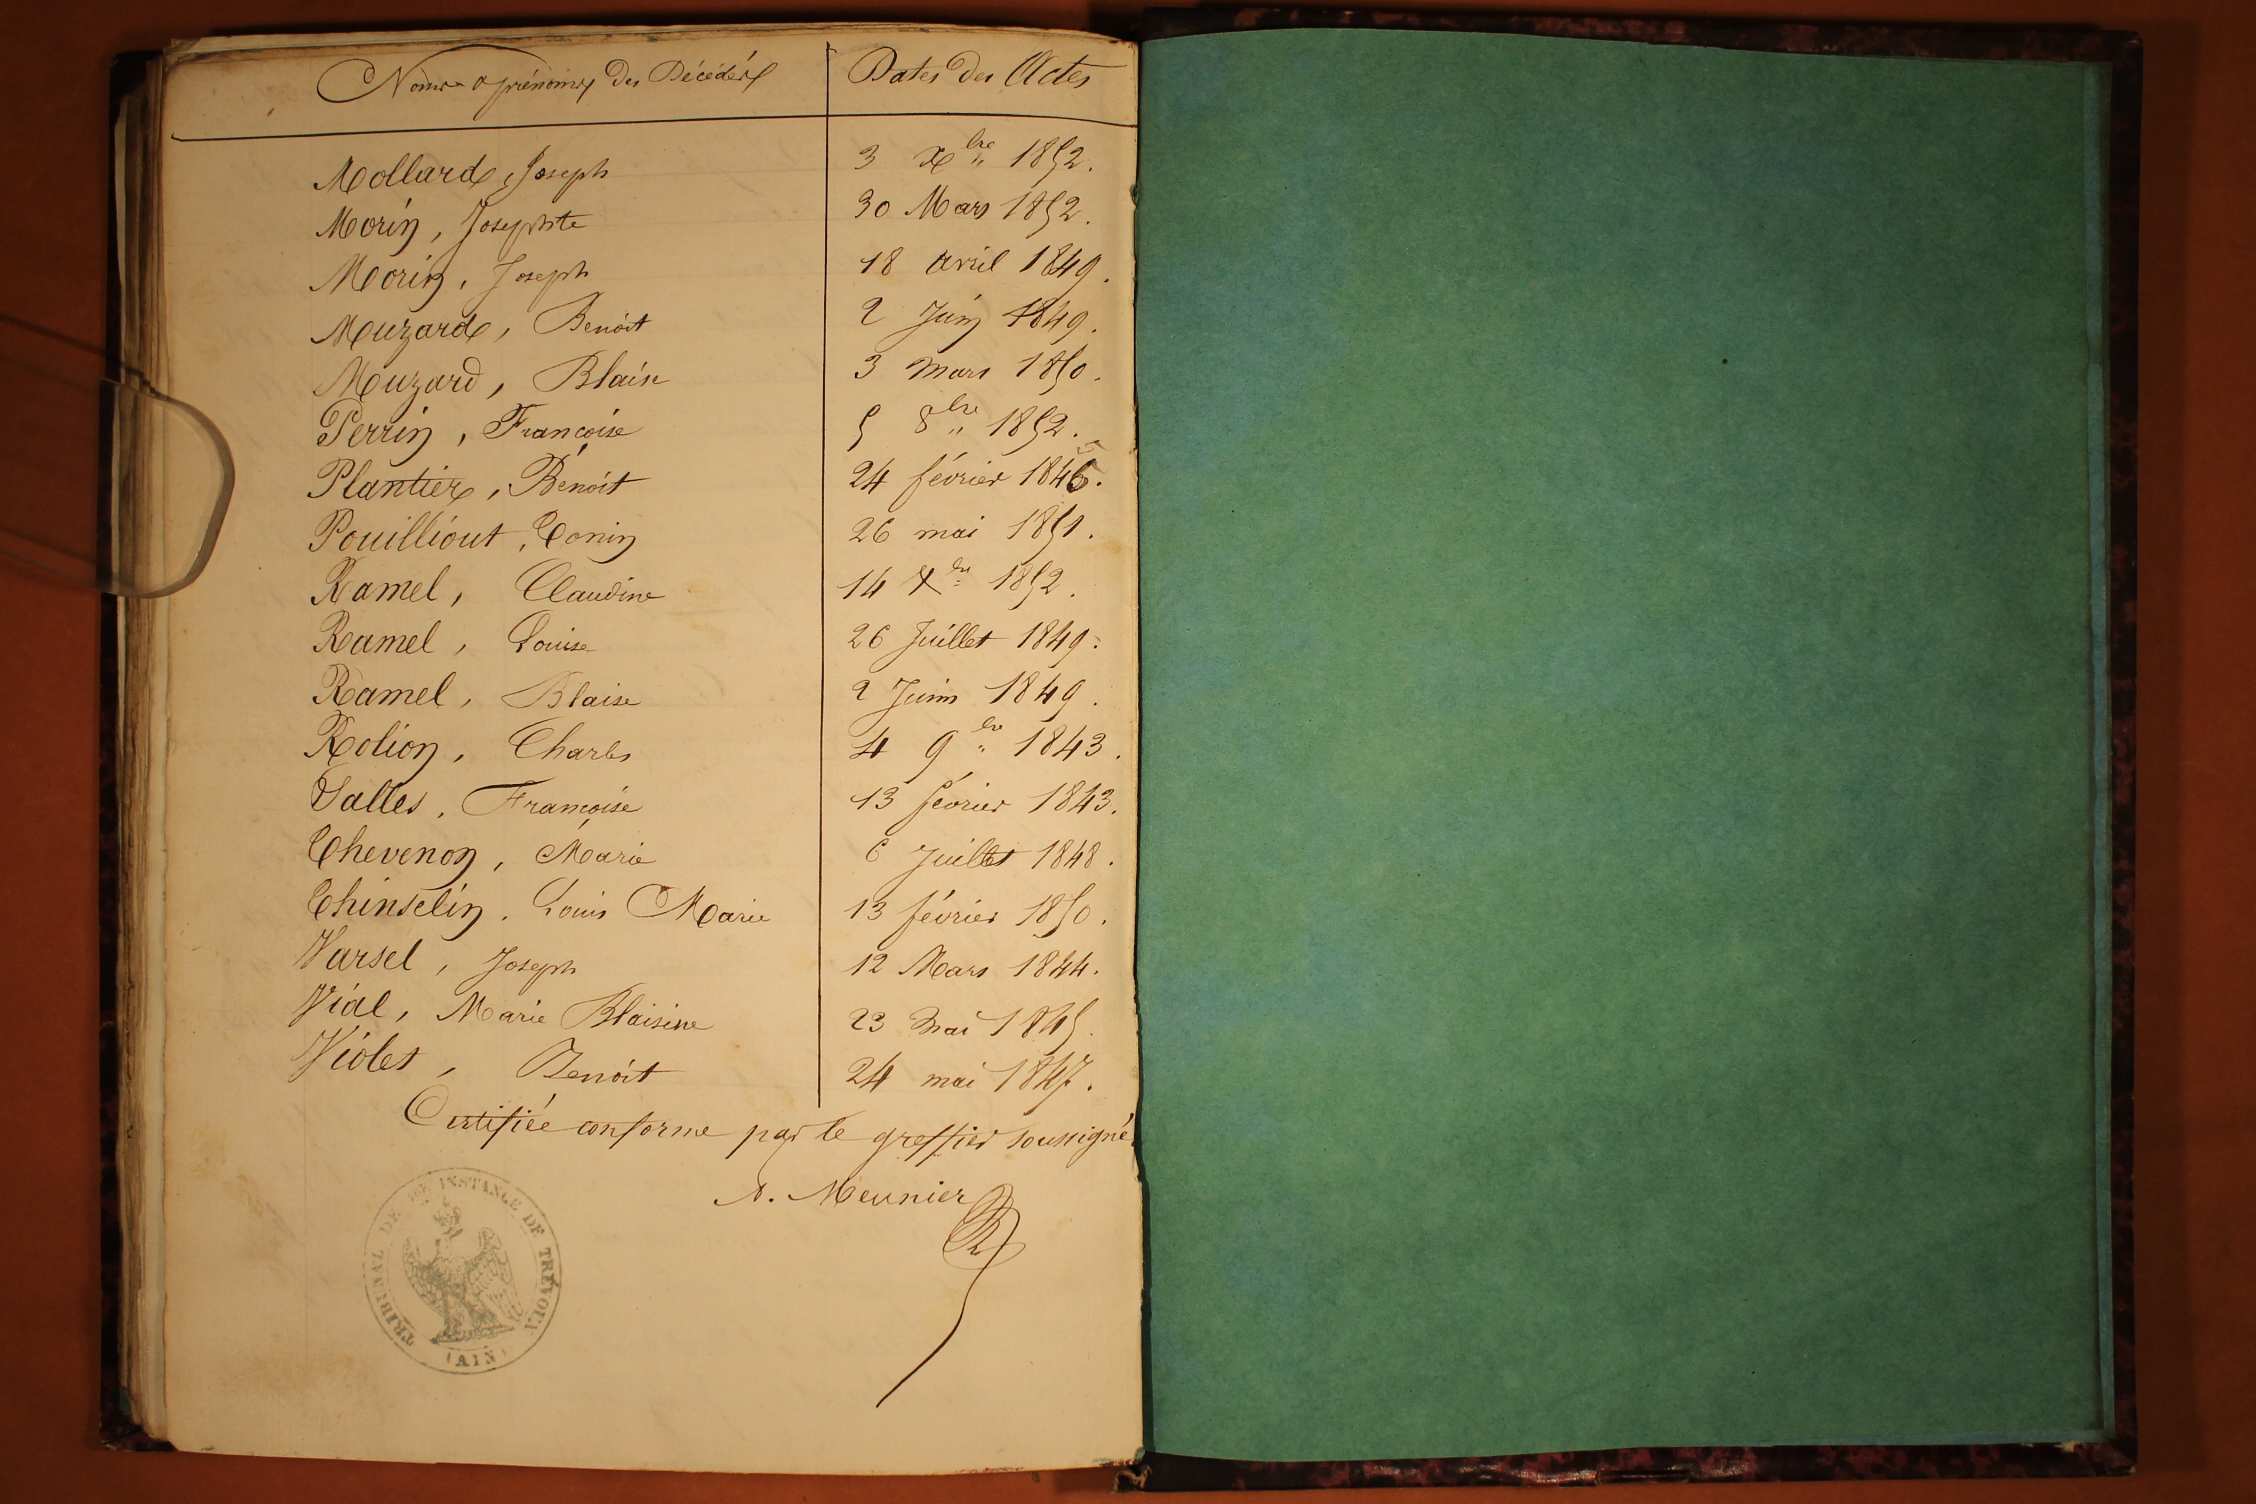 Noms & prénoms des Décédés Dates des Actes
Mollard, Joseph 3 Xbre 1852.
Morin, Josephte 30 Mars 1852.
Morin, Joseph 18 avril 1849.
Muzard, Benoit 2 Juin 1849.
Muzard, Blaise 3 mars 1850.
Perrin, Françoise 5 8bre 1852.
Plantier, Benoit 24 février 1846.
Pouilliout, Tonin 26 mai 1851.
Ramel, Claudine 14 Xbre 1852.
Ramel, Louise 26 Juillet 1849.
Ramel, Blaise 2 Juin 1849.
Rolion, Charles 4 9bre 1843.
Salles, Françoise 13 février 1843.
Thevenon, Marie 6 Juillet 1848.
Thinselin, Louis Marie 13 février 1850.
Varsel, Joseph 12 Mars 1844.
Vial, Marie Blaisine 23 Mai 1845.
Violet, Benoit 24 mai 1847.
Certifiée conforme par le greffier soussigné
A. Meunier
TRIBUNAL DE 1RE INSTANCE DE TRÉVOUX
(AIN)